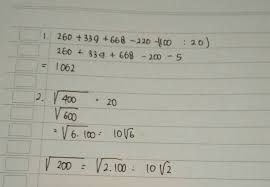 1. 260 + 339 + 668 - 220 - (100 : 20)
260 + 339 + 668 - 200 - 5
= 1062
2. √400 = 20
√600
= √6.100 = 10√6
√200 = √2.100 = 10√2